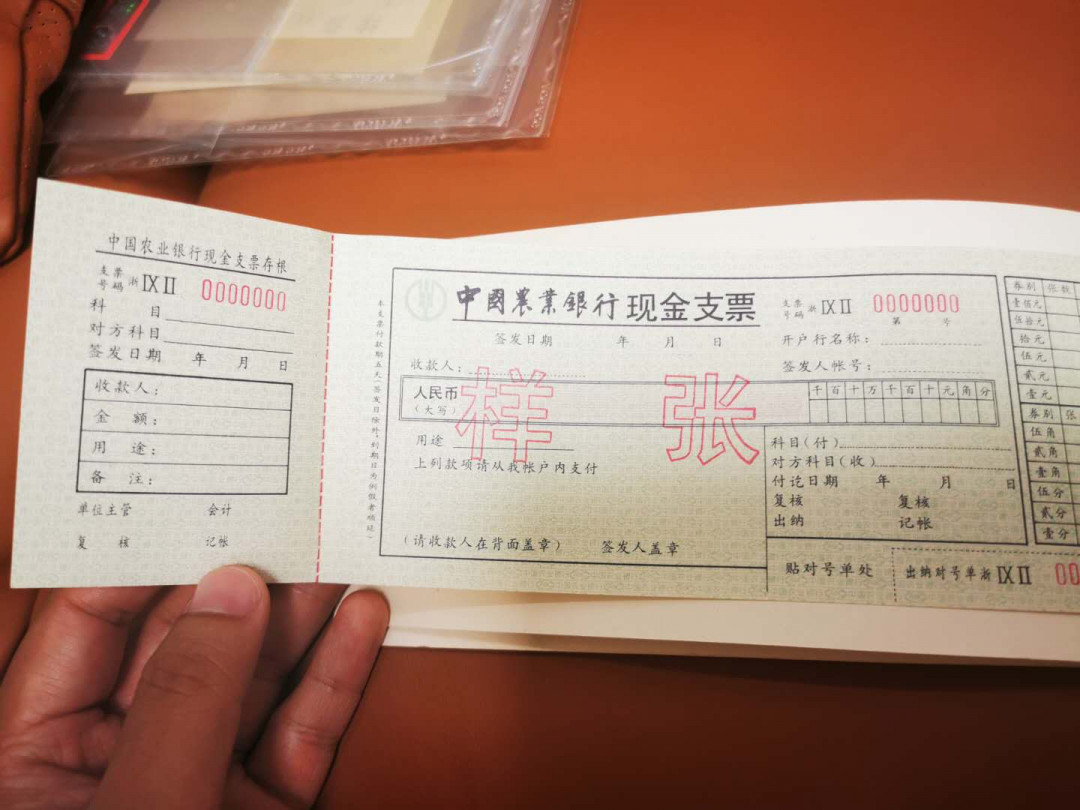 中国农业银行现金支票存根
支票号码 浙 IX II 0000000
科 目
对方科目
签发日期 年 月 日
收款人：
金 额：
用 途：
备 注：
单位主管 会计
复 核 记帐
中國農業銀行 现金支票
支票号码 浙 IX II 0000000
第 号
签发日期 年 月 日
开户行名称：
收款人：
签发人帐号：
人民币
（大写）
千 百 十 万 千 百 十 元 角 分
样 张
用途
上列款项请从我帐户内支付
科目（付）
对方科目（收）
付讫日期 年 月 日
复核 复核
出纳 记帐
（请收款人在背面盖章） 签发人盖章
贴对号单处
出纳对号单 浙 IX II 00
券别 张
壹佰元
伍拾元
拾元
伍元
贰元
壹元
券别 张
伍角
贰角
壹角
伍分
贰分
壹分